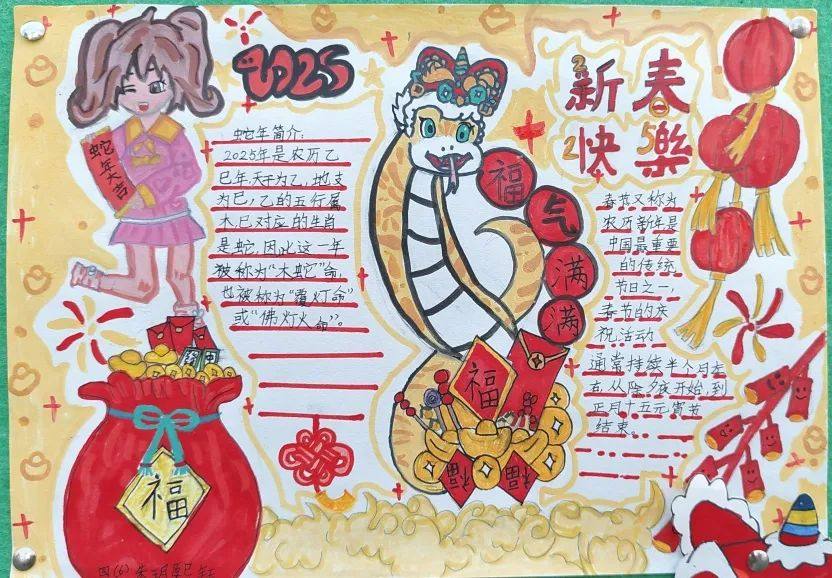 2025
新春
快樂
2025
蛇年大吉
蛇年简介:
2025年是农历乙
巳年,天干为乙,地支
为巳,乙的五行属
木,巳对应的生肖
是蛇,因此这一年
被称为“木蛇”命,
也被称为“覆灯命”
或“佛灯火命”。
福
气
满
满
春节又称为
农历新年是
中国最重要
的传统
节日之一,
春节的庆
祝活动
通常持续半个月左
右,从除夕夜开始,到
正月十五元宵节
结束。
福
福
福
福
四(6)朱